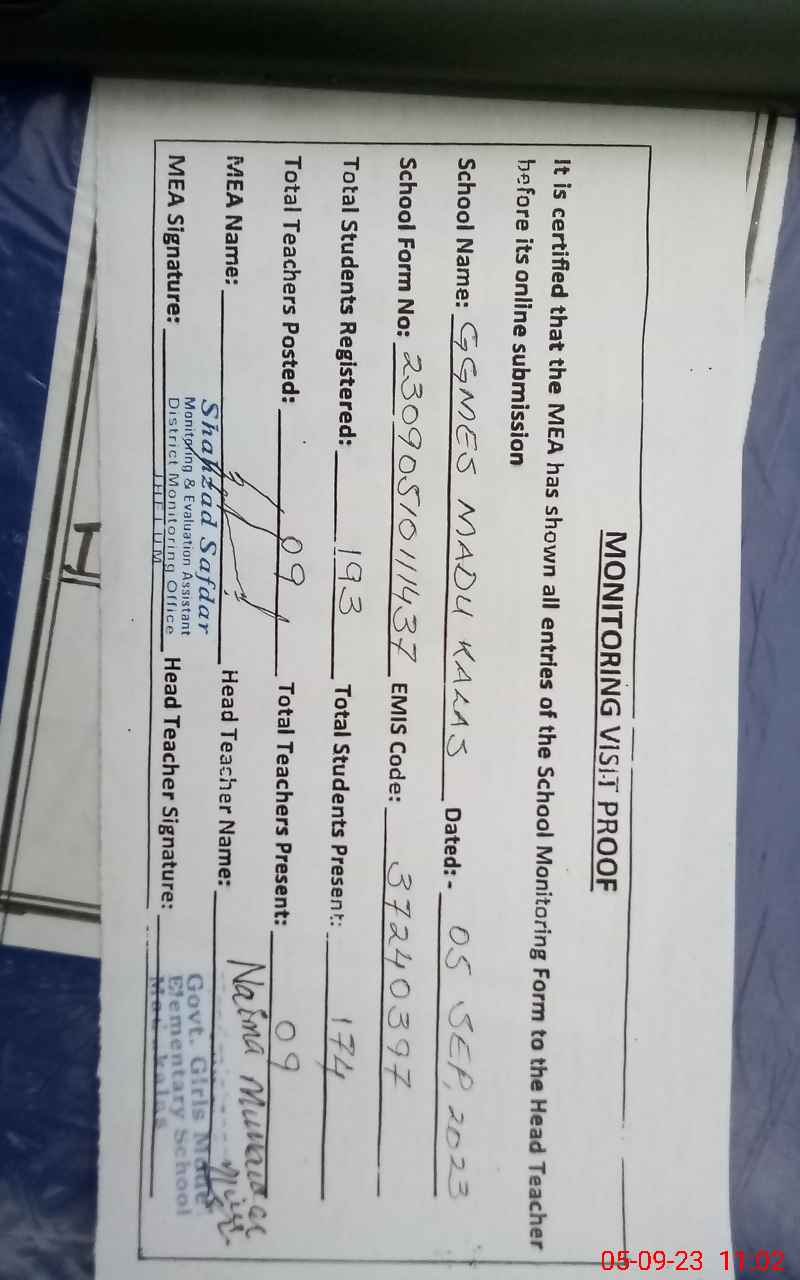 MONITORING VISIT PROOF
It is certified that the MEA has shown all entries of the School Monitoring Form to the Head Teacher
before its online submission
School Name: GGMES MADU KALAS Dated:- 05 SEP, 2023
School Form No: 23090510111437 EMIS Code: 37240397
Total Students Registered: 193 Total Students Present: 174
Total Teachers Posted: 09 Total Teachers Present: 09
MEA Name: Shahzad Safdar Head Teacher Name: Naima
Monitoring & Evaluation Assistant
District Monitoring Office
JHELUM
MEA Signature: Head Teacher Signature:
Govt. Girls Model
Elementary School
05-09-23 11:02